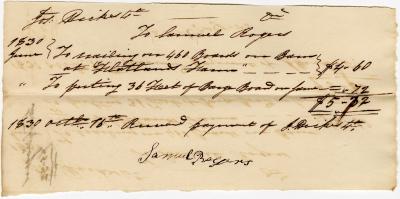 Jos. Ricketts Dr
To Samuel Rogers
1830
June To nailing on 460 Boards on Barn
at Flottland Farm $4-60
" To putting 36 feet of Barge Board on same = 72
$5-32
1830 Octbr. 16th Received payment of J. Ricketts
Samuel Rogers